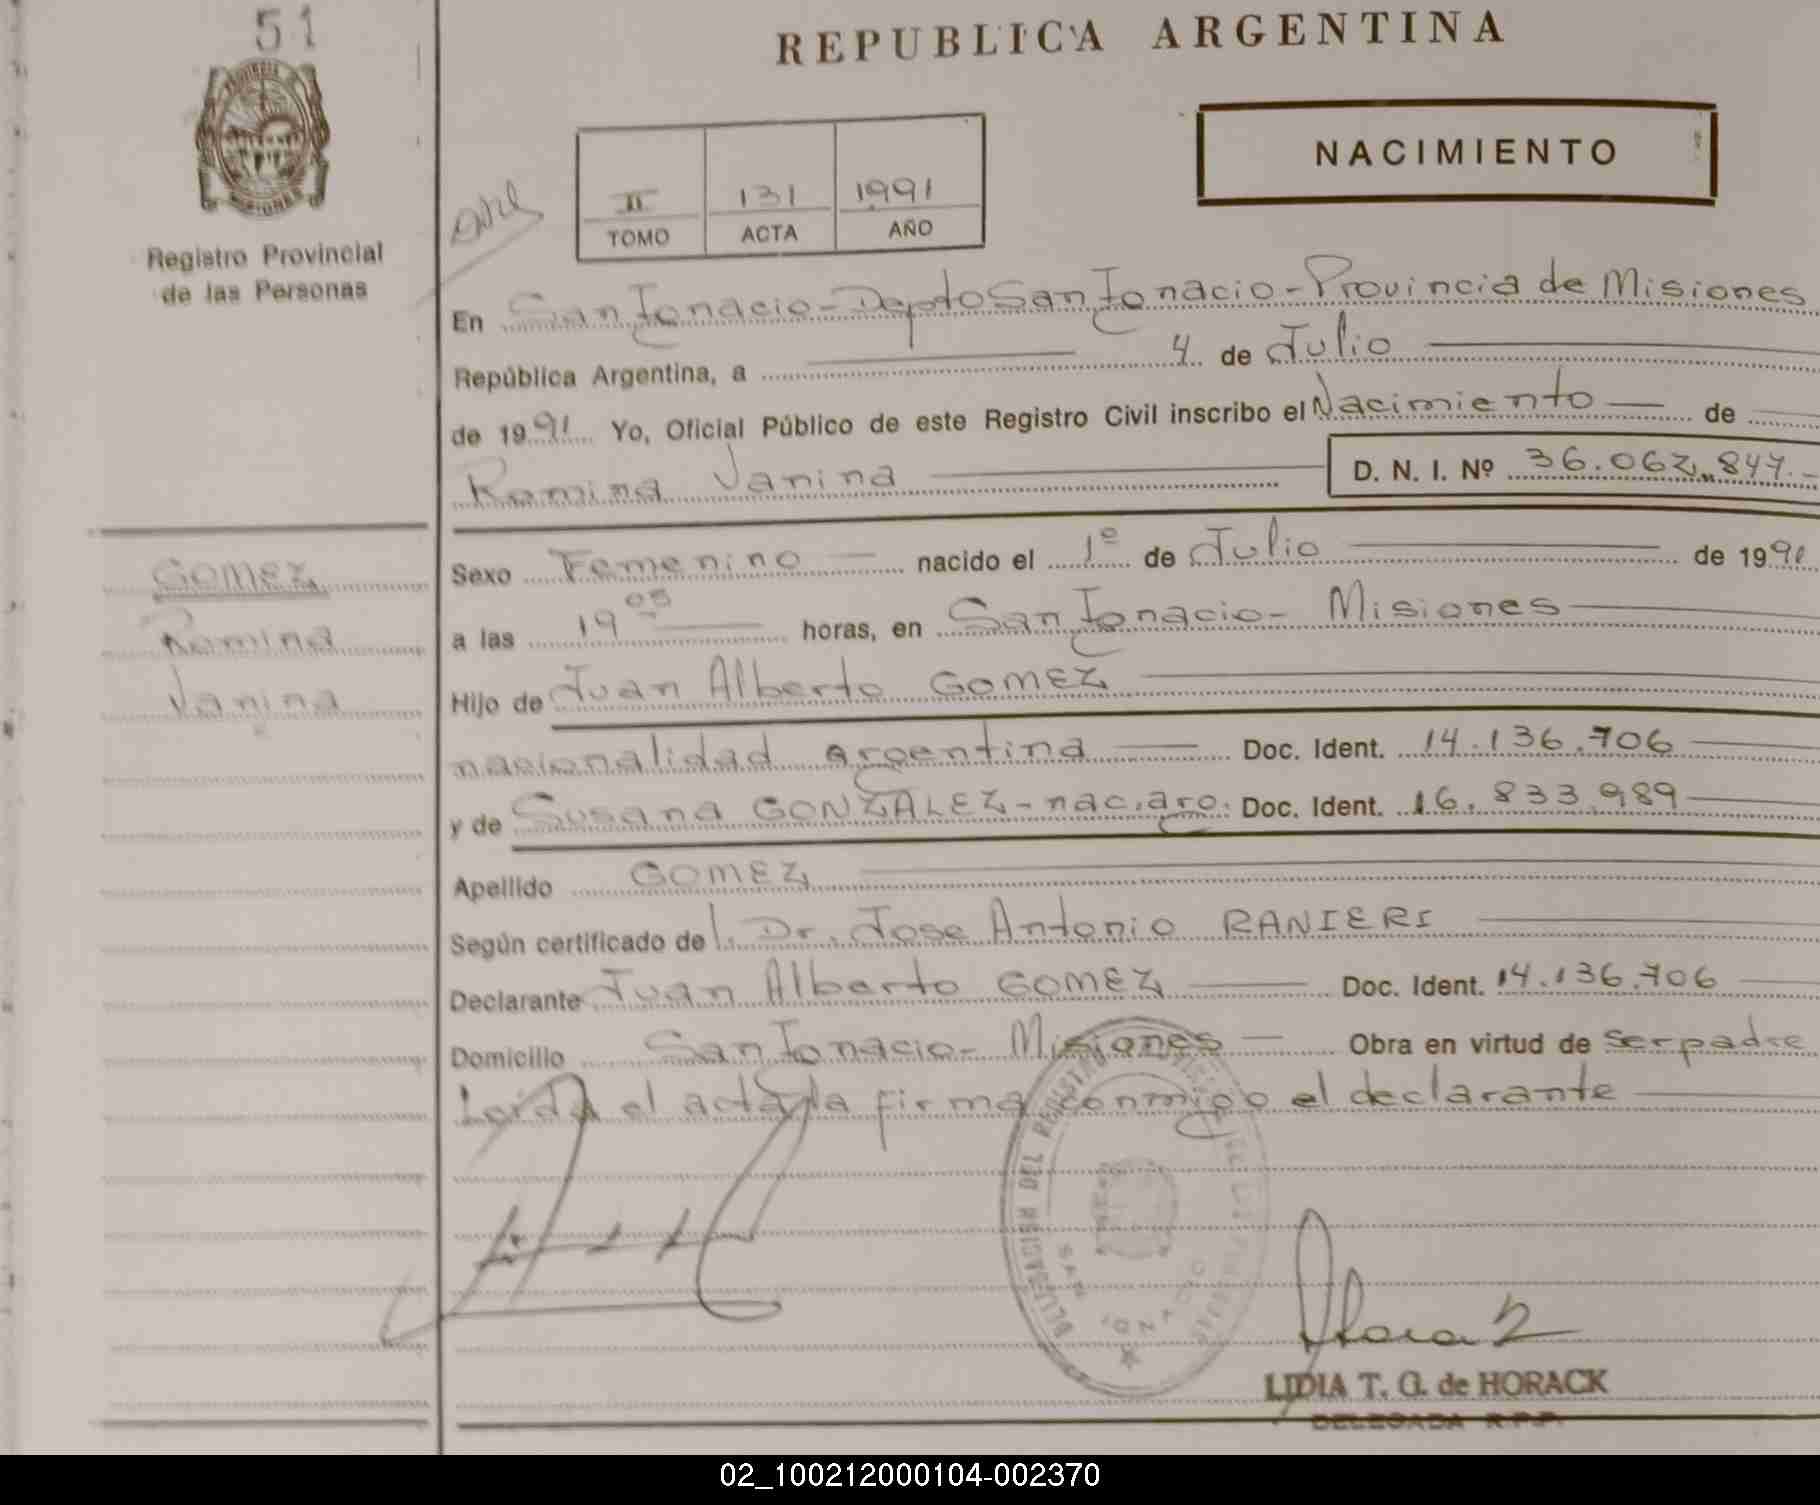 51
REPUBLICA ARGENTINA
NACIMIENTO
II 131 1991
TOMO ACTA AÑO
MISIONES
Registro Provincial
de las Personas
En San Ignacio - Depto San Ignacio - Provincia de Misiones
República Argentina, a 4 de Julio
de 1991 Yo, Oficial Público de este Registro Civil inscribo el Nacimiento de
Romina Vanina D. N. I. Nº 36.062.847.-
GOMEZ
Romina
Vanina
Sexo Femenino nacido el 1º de Julio de 1991
a las 19 05 horas, en San Ignacio - Misiones
Hijo de Juan Alberto GOMEZ
nacionalidad argentina Doc. Ident. 14.136.706
y de Susana GONZALEZ - nac. arg. Doc. Ident. 16.833.989
Apellido GOMEZ
Según certificado del Dr. Jose Antonio RANIERI
Declarante Juan Alberto GOMEZ Doc. Ident. 14.136.706
Domicilio San Ignacio - Misiones Obra en virtud de ser padre
Leida el acta la firma conmigo el declarante
DELEGACION DEL REGISTRO PROVINCIAL DE LAS PERSONAS
SAN IGNACIO
Horack
LIDIA T. G. de HORACK
DELEGADA R.P.P.
02_100212000104-002370